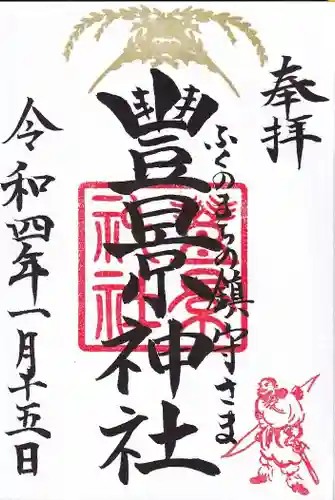 奉拝
ふくのまちの鎮守さま
豐景神社
令和四年一月十五日
豊景神社